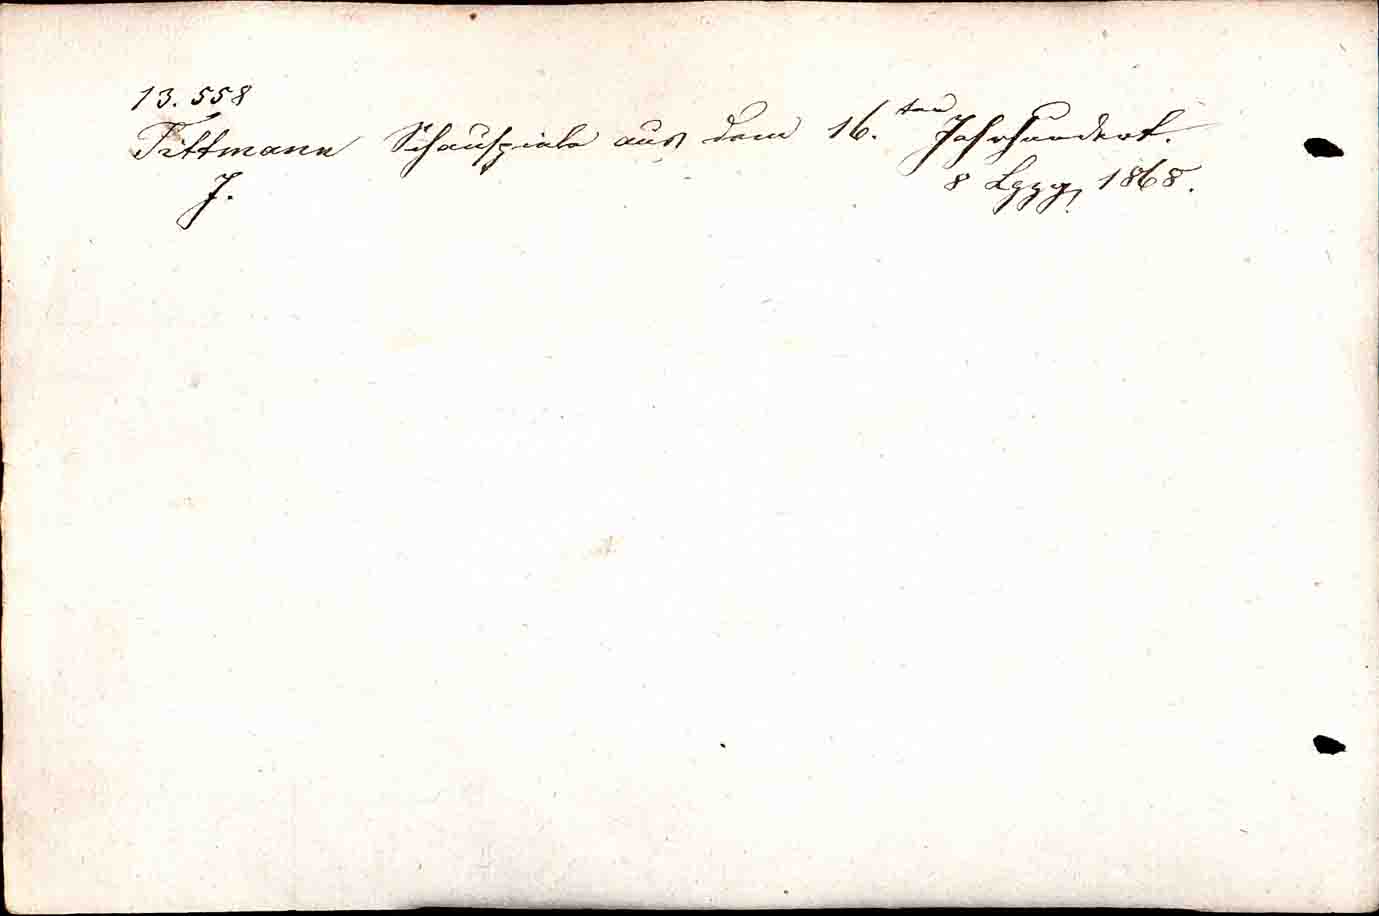 13.558
Tittmann Schauspiele aus dem 16.ten Jahrhundert.
J. 8 Lpzg, 1868.